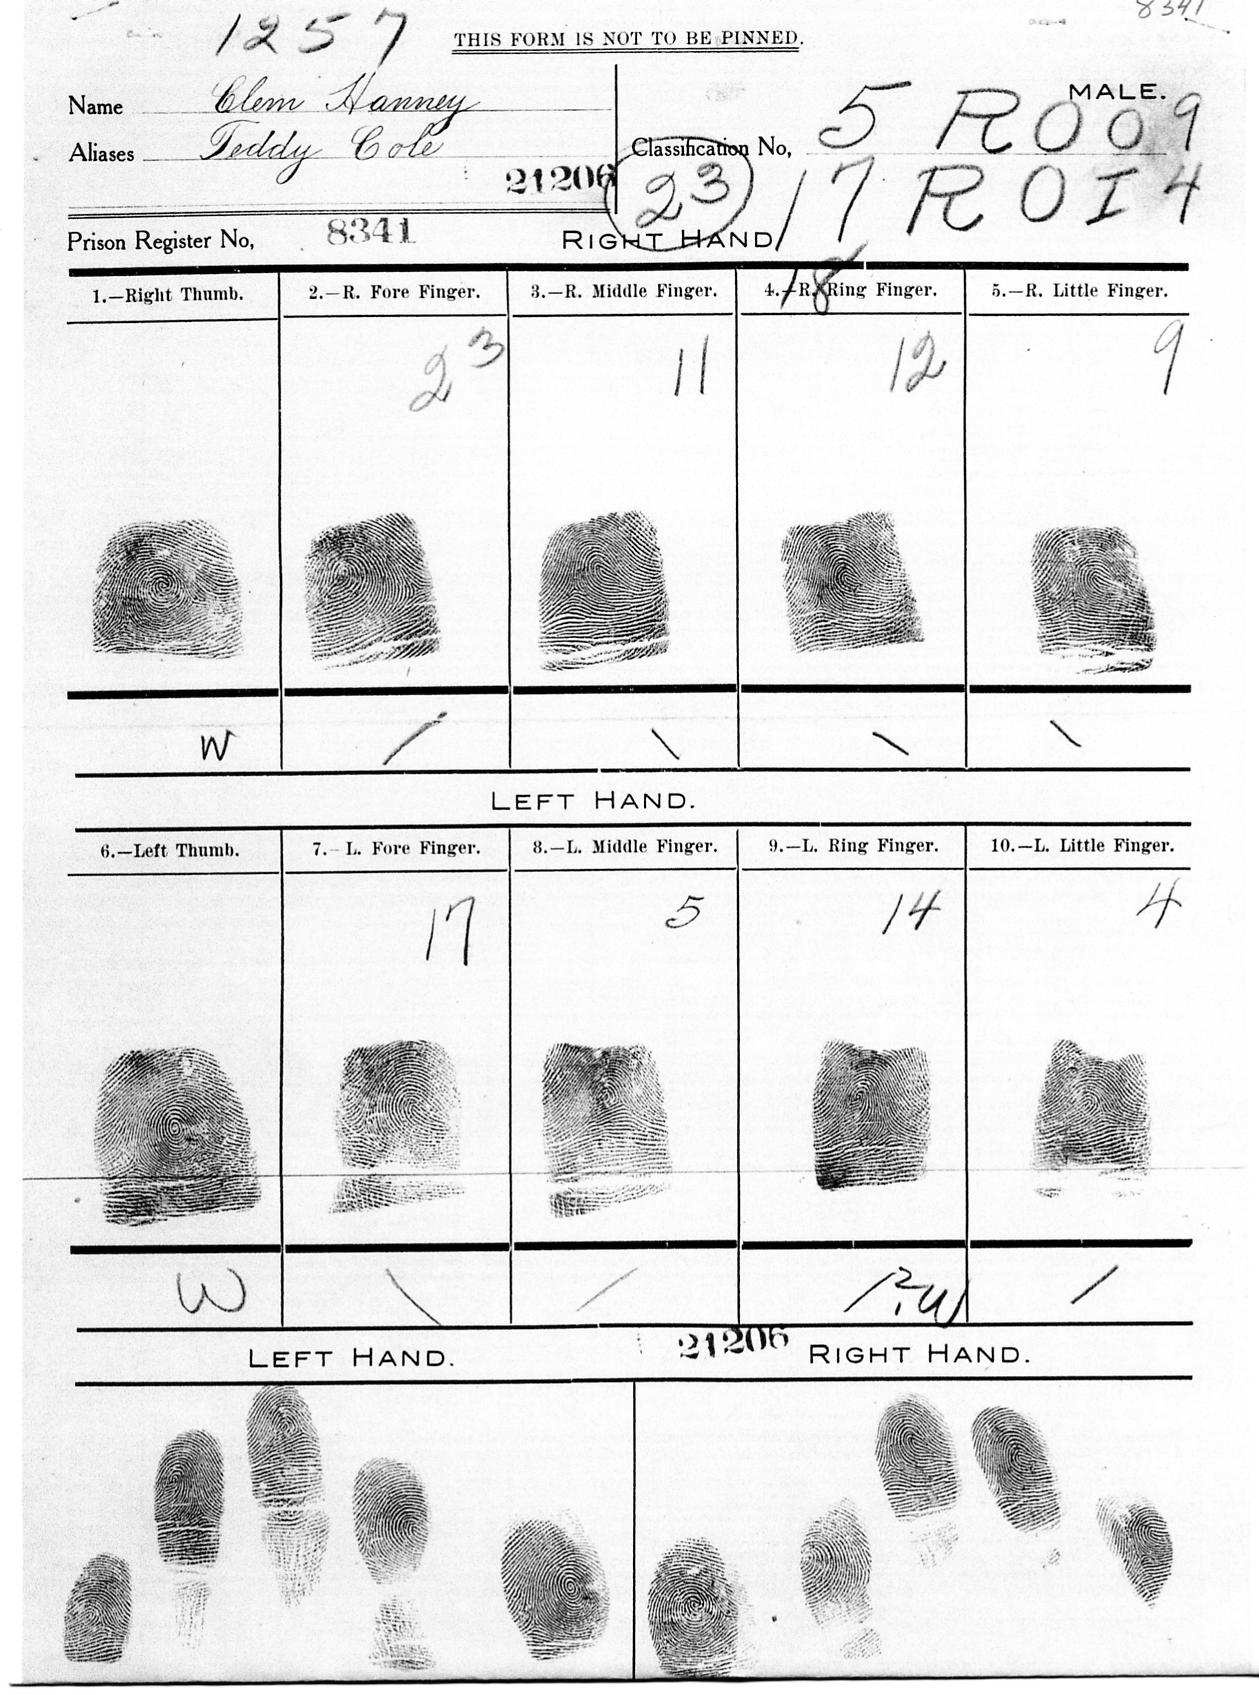 8341
1257
THIS FORM IS NOT TO BE PINNED.
MALE.
Name Clem Hanney
Aliases Teddy Cole
Classification No, 5 R O O 9
23 17 R O I 4
18
21206
Prison Register No, 8341
RIGHT HAND
1.—Right Thumb. 2.—R. Fore Finger. 3.—R. Middle Finger. 4.—R. Ring Finger. 5.—R. Little Finger.
23 11 12 9
W / \ \ \
LEFT HAND.
6.—Left Thumb. 7.—L. Fore Finger. 8.—L. Middle Finger. 9.—L. Ring Finger. 10.—L. Little Finger.
17 5 14 4
W \ / /?.W /
21206
LEFT HAND. RIGHT HAND.